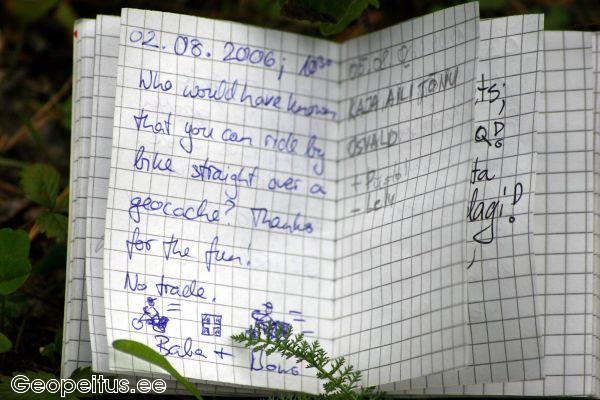 02.08.2006; 10³⁰
Who would have known
that you can ride by
bike straight over a
geocache? Thanks
for the fun!
No trade.
Baba +
05.08
KAJA AILI TÕNU
OSVALD
ts;
ta
lagi!
Geopeitus.ee